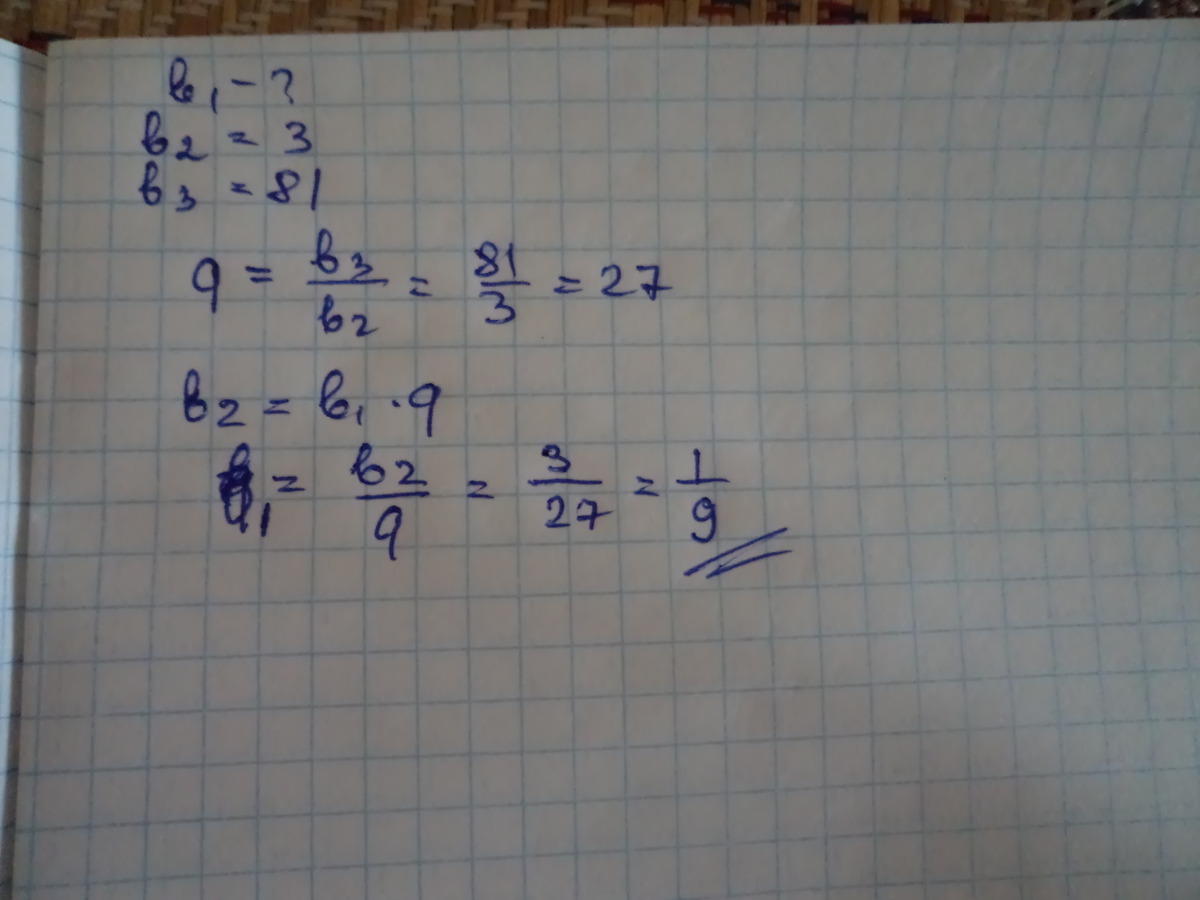 b₁ - ?
b₂ = 3
b₃ = 81
q = b₃/b₂ = 81/3 = 27
b₂ = b₁ · q
b₁ = b₂/q = 3/27 = 1/9